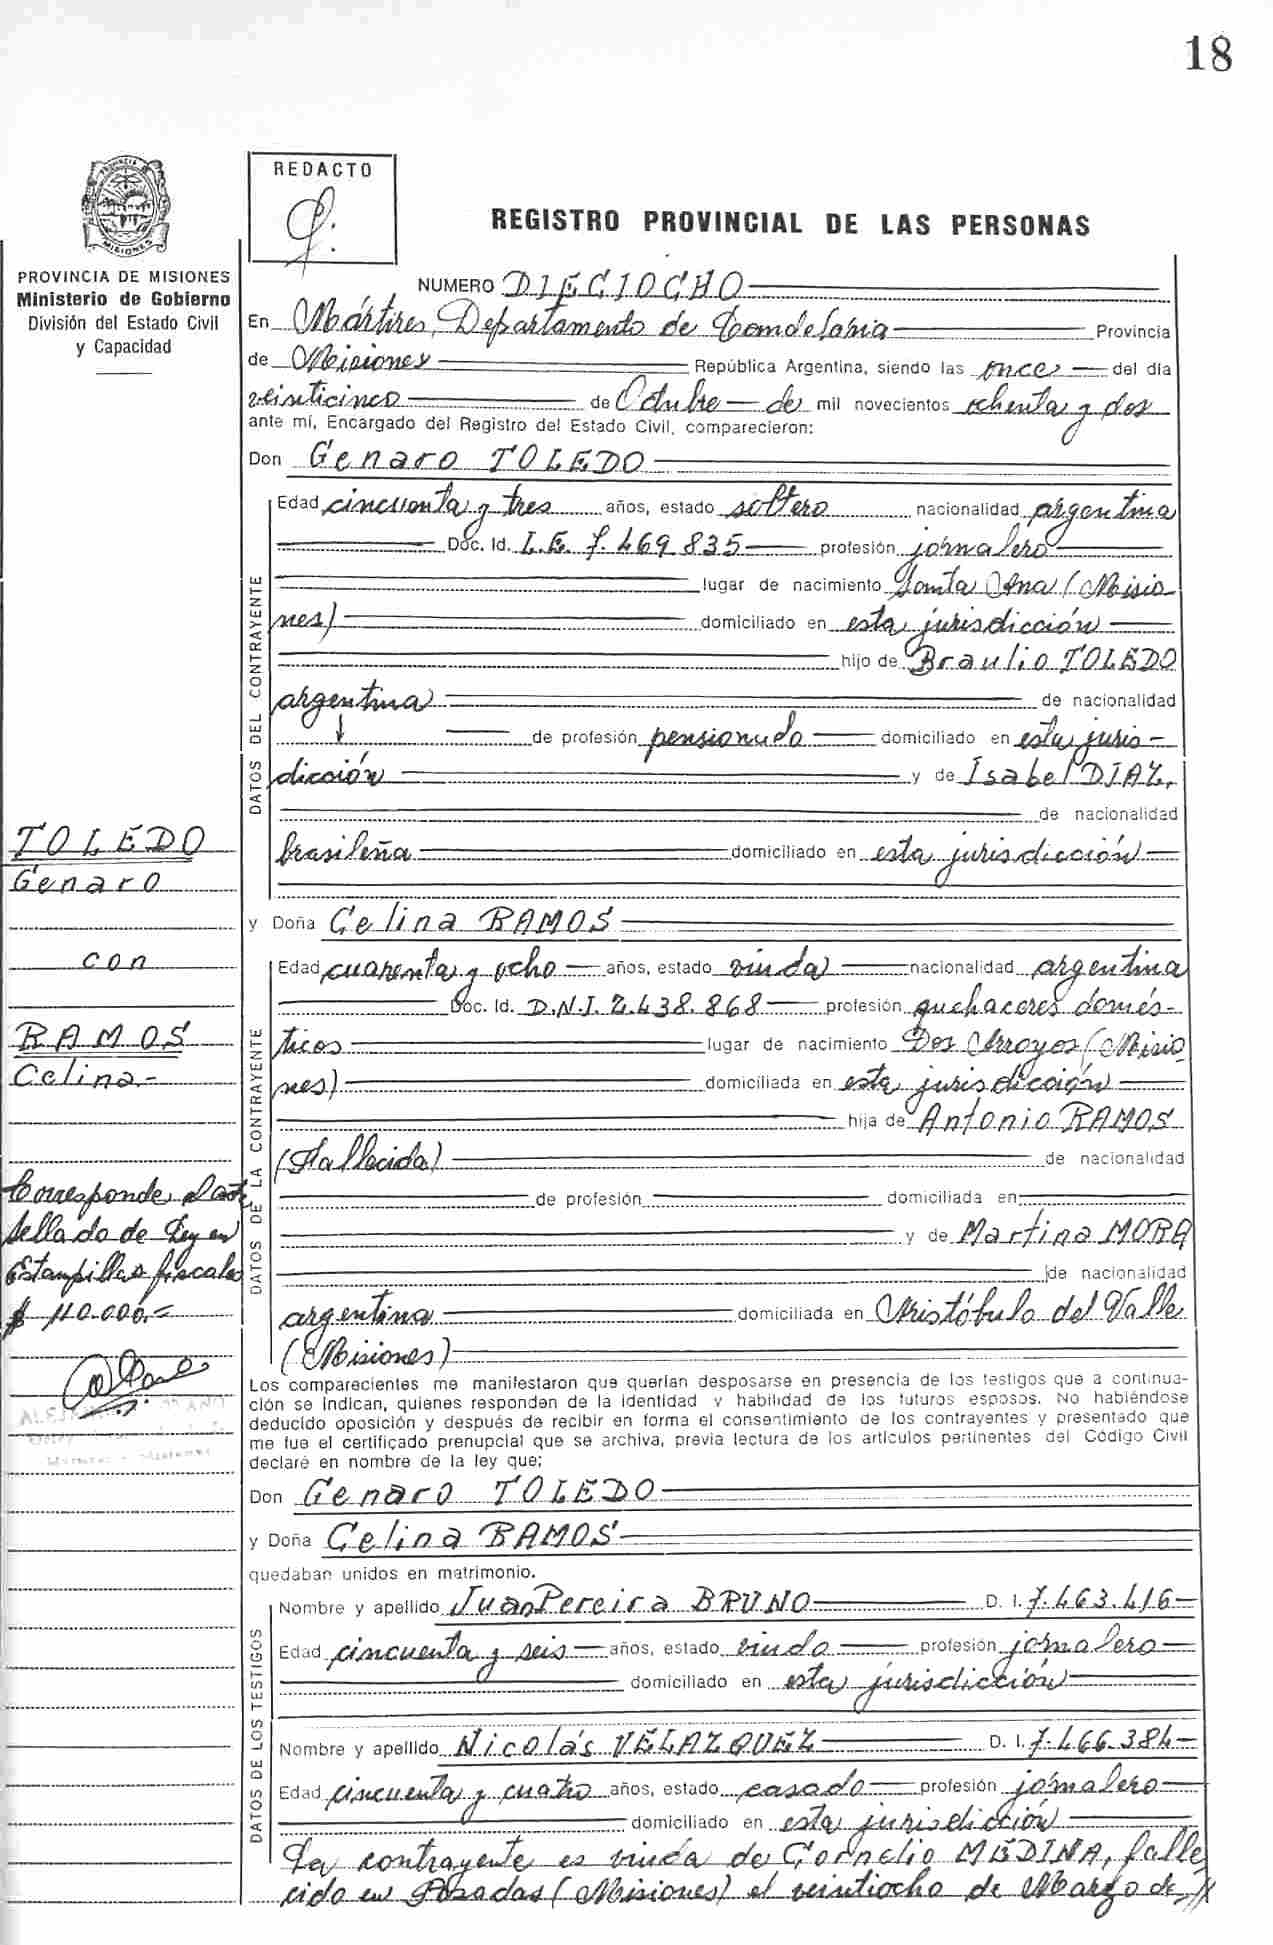 18
REDACTO
REGISTRO PROVINCIAL DE LAS PERSONAS
PROVINCIA DE MISIONES
Ministerio de Gobierno
División del Estado Civil
y Capacidad
NUMERO DIECIOCHO
En Mártires, Departamento de Candelaria Provincia
de Misiones República Argentina, siendo las once del día
veinticinco de Octubre de mil novecientos ochenta y dos
ante mí, Encargado del Registro del Estado Civil, comparecieron:
Don Genaro TOLEDO
DATOS DEL CONTRAYENTE
Edad cincuenta y tres años, estado soltero nacionalidad argentina
Doc. Id. L.E. 7.469.835 profesión jornalero
lugar de nacimiento Santa Ana (Misio
nes) domiciliado en esta jurisdicción
hijo de Braulio TOLEDO
argentina de nacionalidad
de profesión pensionado domiciliado en esta juris-
dicción y de Isabel DIAZ,
de nacionalidad
brasileña domiciliado en esta jurisdicción
y Doña Celina RAMOS
DATOS DE LA CONTRAYENTE
Edad cuarenta y ocho años, estado viuda nacionalidad argentina
Doc. Id. D.N.I. 2.438.868 profesión quehaceres domés-
ticos lugar de nacimiento Dos Arroyos (Misio
nes) domiciliada en esta jurisdicción
hija de Antonio RAMOS
(Fallecido) de nacionalidad
de profesión domiciliada en:
y de Martina MORA
de nacionalidad
argentina domiciliada en Aristóbulo del Valle
(Misiones)
TOLEDO
Genaro
con
RAMOS
Celina.-
Corresponde
sellado de Ley en
Estampillas fiscales
$ 110.000.=
Los comparecientes me manifestaron que querían desposarse en presencia de los testigos que a continua-
ción se indican, quienes responden de la identidad y habilidad de los futuros esposos. No habiéndose
deducido oposición y después de recibir en forma el consentimiento de los contrayentes y presentado que
me fue el certificado prenupcial que se archiva, previa lectura de los artículos pertinentes del Código Civil
declaré en nombre de la ley que:
Don Genaro TOLEDO
y Doña Celina RAMOS
quedaban unidos en matrimonio.
DATOS DE LOS TESTIGOS
Nombre y apellido Juan Pereira BRUNO D. I. 7.463.416
Edad cincuenta y seis años, estado viudo profesión jornalero
domiciliado en esta jurisdicción
Nombre y apellido Nicolás VELAZQUEZ D. I. 7.466.384
Edad cincuenta y cuatro años, estado casado profesión jornalero
domiciliado en esta jurisdicción
La contrayente es viuda de Cornelio MEDINA, falle
cido en Posadas (Misiones) el veintiocho de Marzo de //